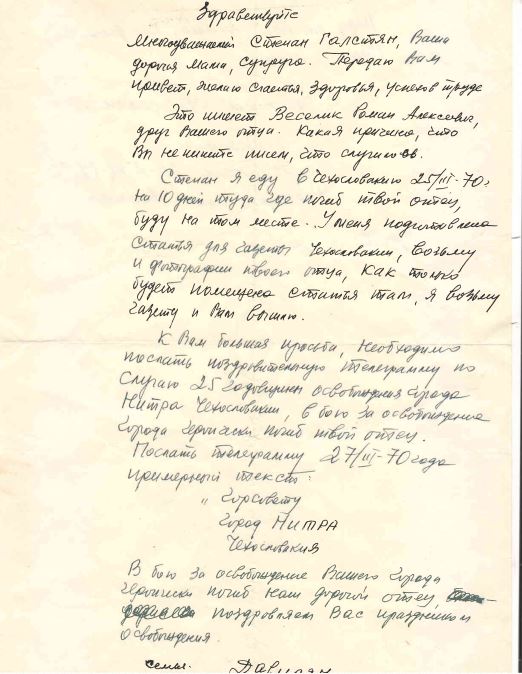 Здравствуйте
Многоуважаемый Степан Галстян, Ваша
дорогая мама, супруга. Передаю Вам
привет, желаю счастья, здоровья, успехов труде
Это пишет Веселик Роман Алексеевич,
друг Вашего отца. Какая причина, что
Вы не пишите писем, что случилось.
Степан я еду в Чехословакию 25/III-70г
на 10 дней туда где погиб твой отец,
буду на том месте. У меня подготовлена
статья для газеты Чехословакии, возьму
и фотографии твоего отца, как только
будет помещена статья там, я возьму
газету и Вам вышлю.
К Вам большая просьба, необходимо
послать поздравительную телеграмму по
случаю 25 годовщины освобождения города
Нитра Чехословакии, в бою за освобождение
города героически погиб твой отец.
Послать телеграмму 27/III-70 года
примерный текст:
„ Горсовету
город Нитра
Чехословакия
В бою за освобождение Вашего города
героически погиб наш дорогой отец,
поздравляем Вас праздником
освобождения.
семья. Давидян